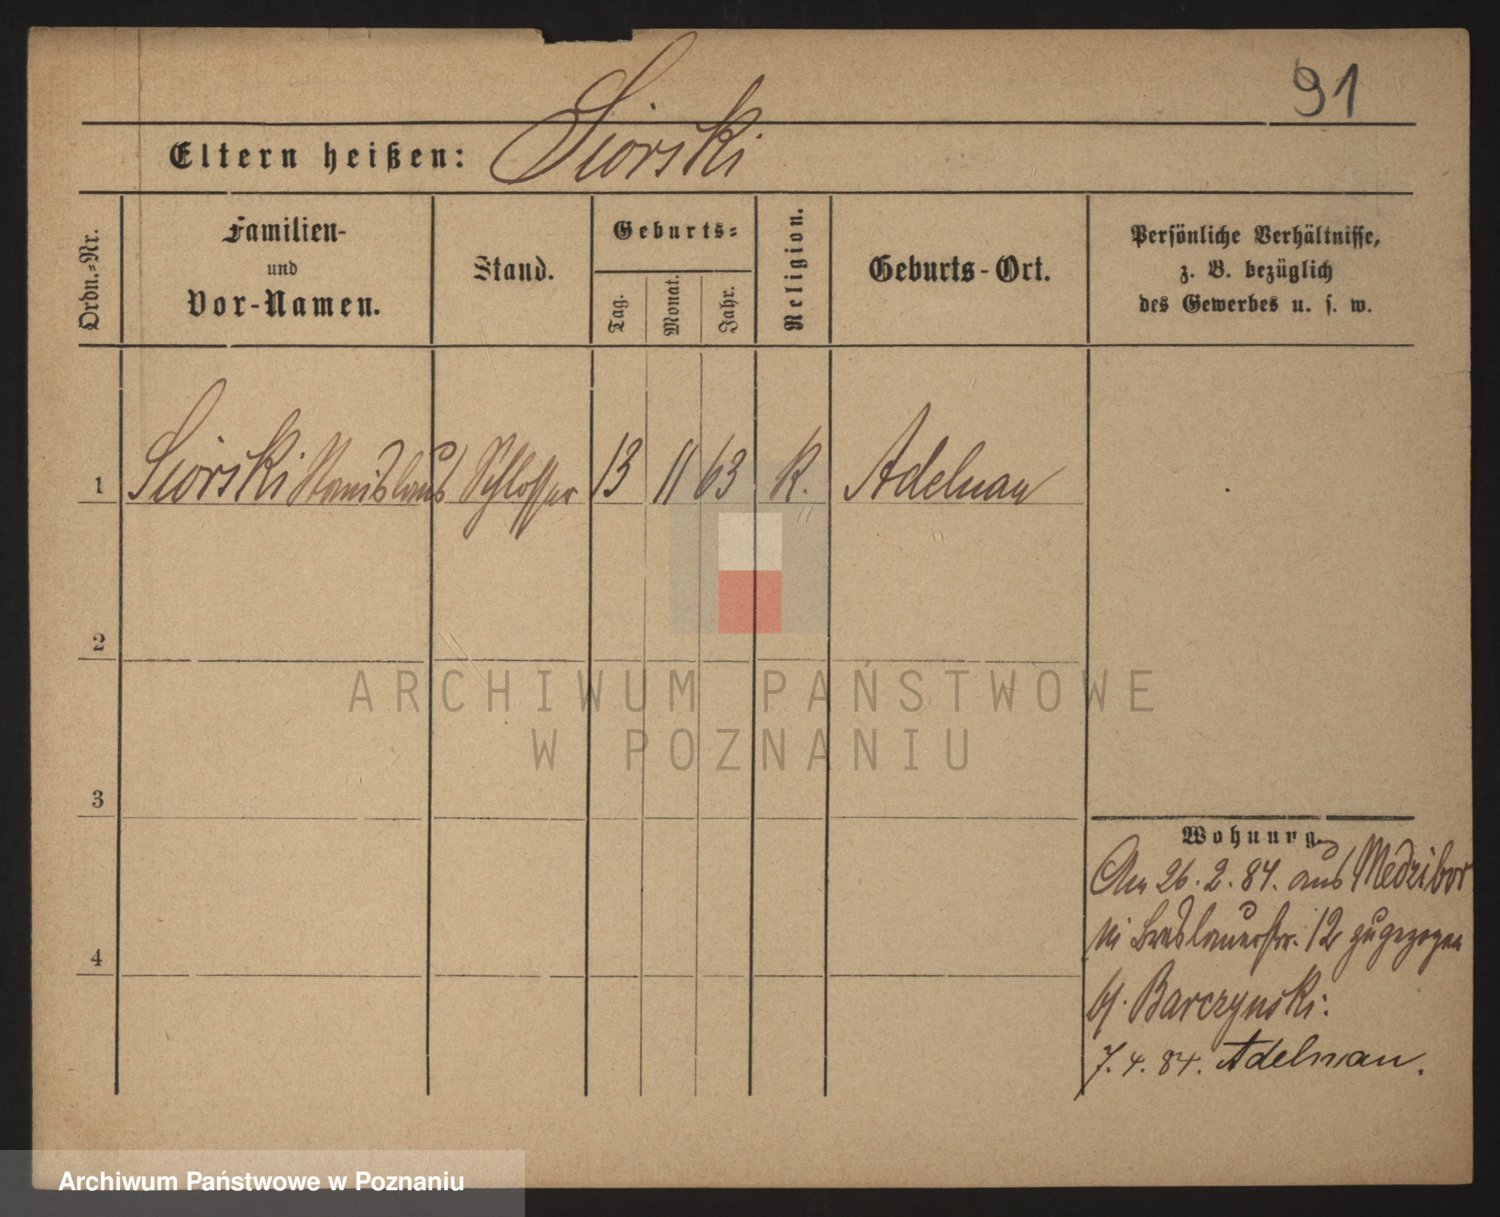 91
Eltern heißen: Siorski
Ordn.-Nr.
Familien- und Vor-Namen.
Stand.
Geburts-
Tag.
Monat.
Jahr.
Religion.
Geburts-Ort.
Persönliche Verhältnisse,
z. B. bezüglich
des Gewerbes u. s. w.
1 Siorski Stanislaus Schlosser 13 11 63 K. Adelnau
2
ARCHIWUM PAŃSTWOWE
W POZNANIU
3
4
Wohnung.
Am 26. 2. 84. aus Medzibor
Breslauerstr. 12 zugezogen
bf. Barczynski.
7. 4. 84. Adelnau.
Archiwum Państwowe w Poznaniu